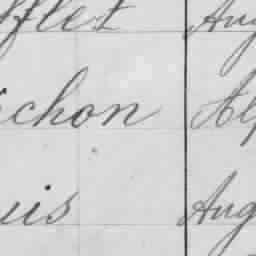 fflet Aug
ichon Alp
uis Aug